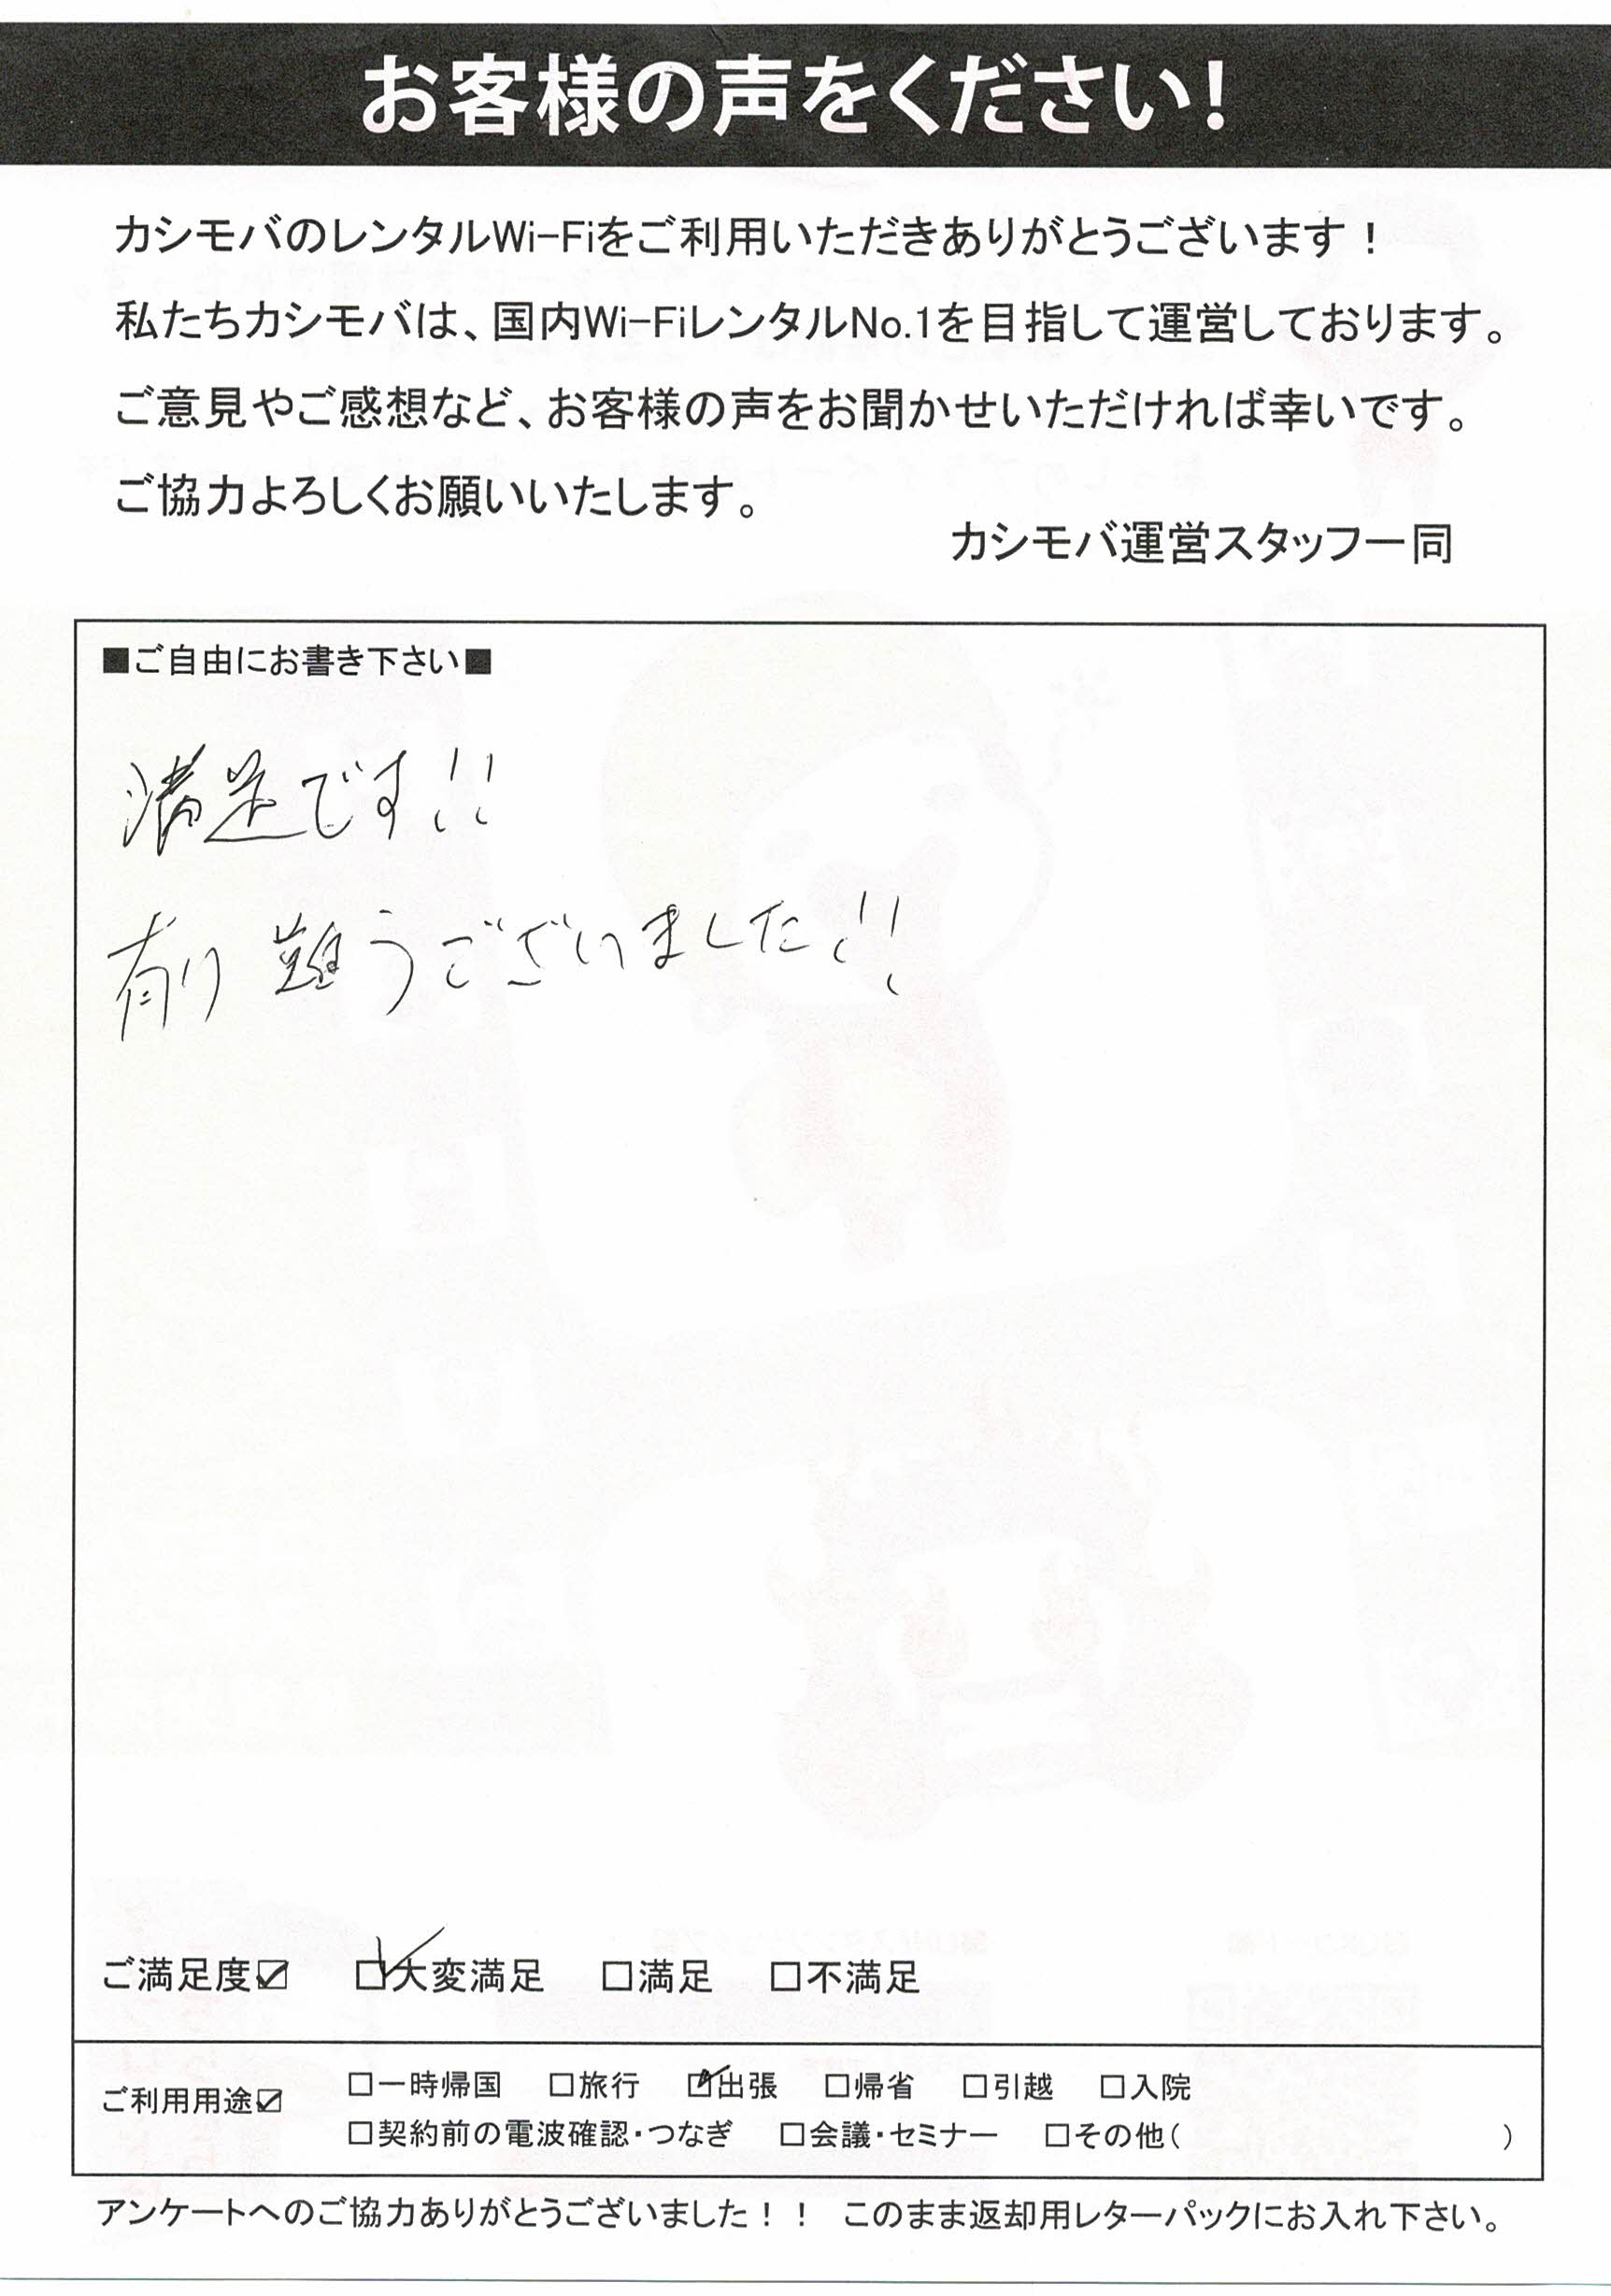 お客様の声をください!
カシモバのレンタルWi-Fiをご利用いただきありがとうございます！
私たちカシモバは、国内Wi-FiレンタルNo.1を目指して運営しております。
ご意見やご感想など、お客様の声をお聞かせいただければ幸いです。
ご協力よろしくお願いいたします。
カシモバ運営スタッフ一同
■ご自由にお書き下さい■
満足です!!
有り難うございました!!
ご満足度☑ ☑大変満足 □満足 □不満足
ご利用用途☑ □一時帰国 □旅行 ☑出張 □帰省 □引越 □入院
□契約前の電波確認・つなぎ □会議・セミナー □その他( )
アンケートへのご協力ありがとうございました！！ このまま返却用レターパックにお入れ下さい。